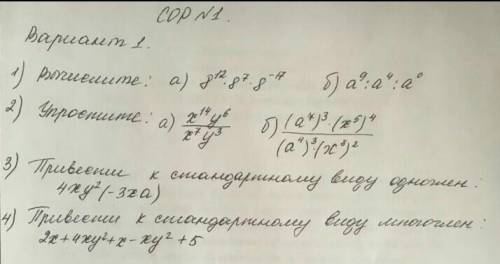 СОР №1.
Вариант 1.
1) Вычислите: а) 8¹²·8⁷·8⁻¹⁷ б) a⁹:a⁴:a⁰
2) Упростите: а) x¹⁴y⁶/x⁷y³ б) (a⁴)³·(x⁵)⁴/(a⁴)³·(x³)²
3) Привести к стандартному виду одночлен:
4xy²(-3xa)
4) Привести к стандартному виду многочлен:
2x+4xy²+x-xy²+5